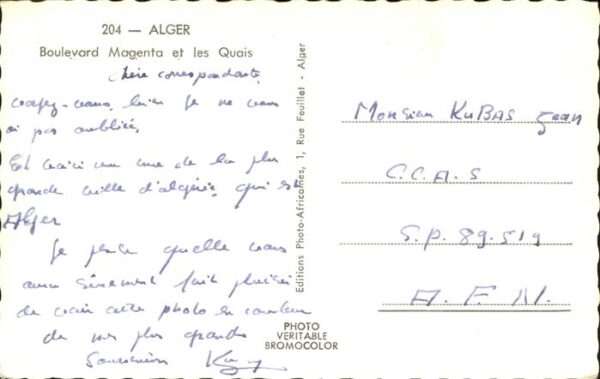 204 — ALGER
Boulevard Magenta et les Quais
chère correspondante,
croyez-vous bien Je ne vous
ai pas oubliée,
Et voici une vue de la plus
grande ville d'algérie, qui est
Alger
Je pense quelle vous
aura sûrement fait plaisir
de voir cette photo en couleur
de nos plus grands
Souvenirs
Editions Photo-Africaines, 1, Rue Feuillet - Alger
PHOTO
VERITABLE
BROMOCOLOR
Monsieur KUBAS Jean
C.C.A.S
S.P. 89.519
A.F.N.